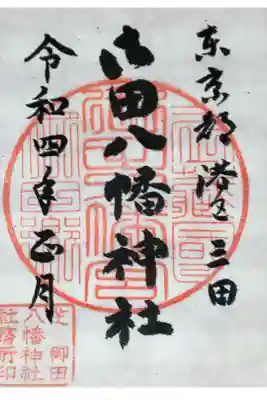 東京都港区三田
御田八幡神社
令和四年正月
芝 御田
八幡神社
社務所印